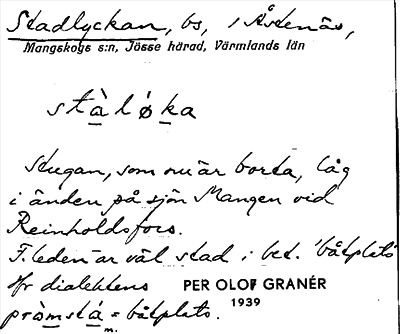 Stadlyckan, bs, i Åstenäs,
Mangskogs s:n, Jösse härad, Värmlands län
stàlǿka
Stugan, som nu är borta, låg
i änden på sjön Mangen vid
Reinholdsfors.
F.leden är väl stad i bet. 'båtplats'
Jfr dialektens PER OLOF GRANÉR
1939
pràmstá = båtplats.
m.